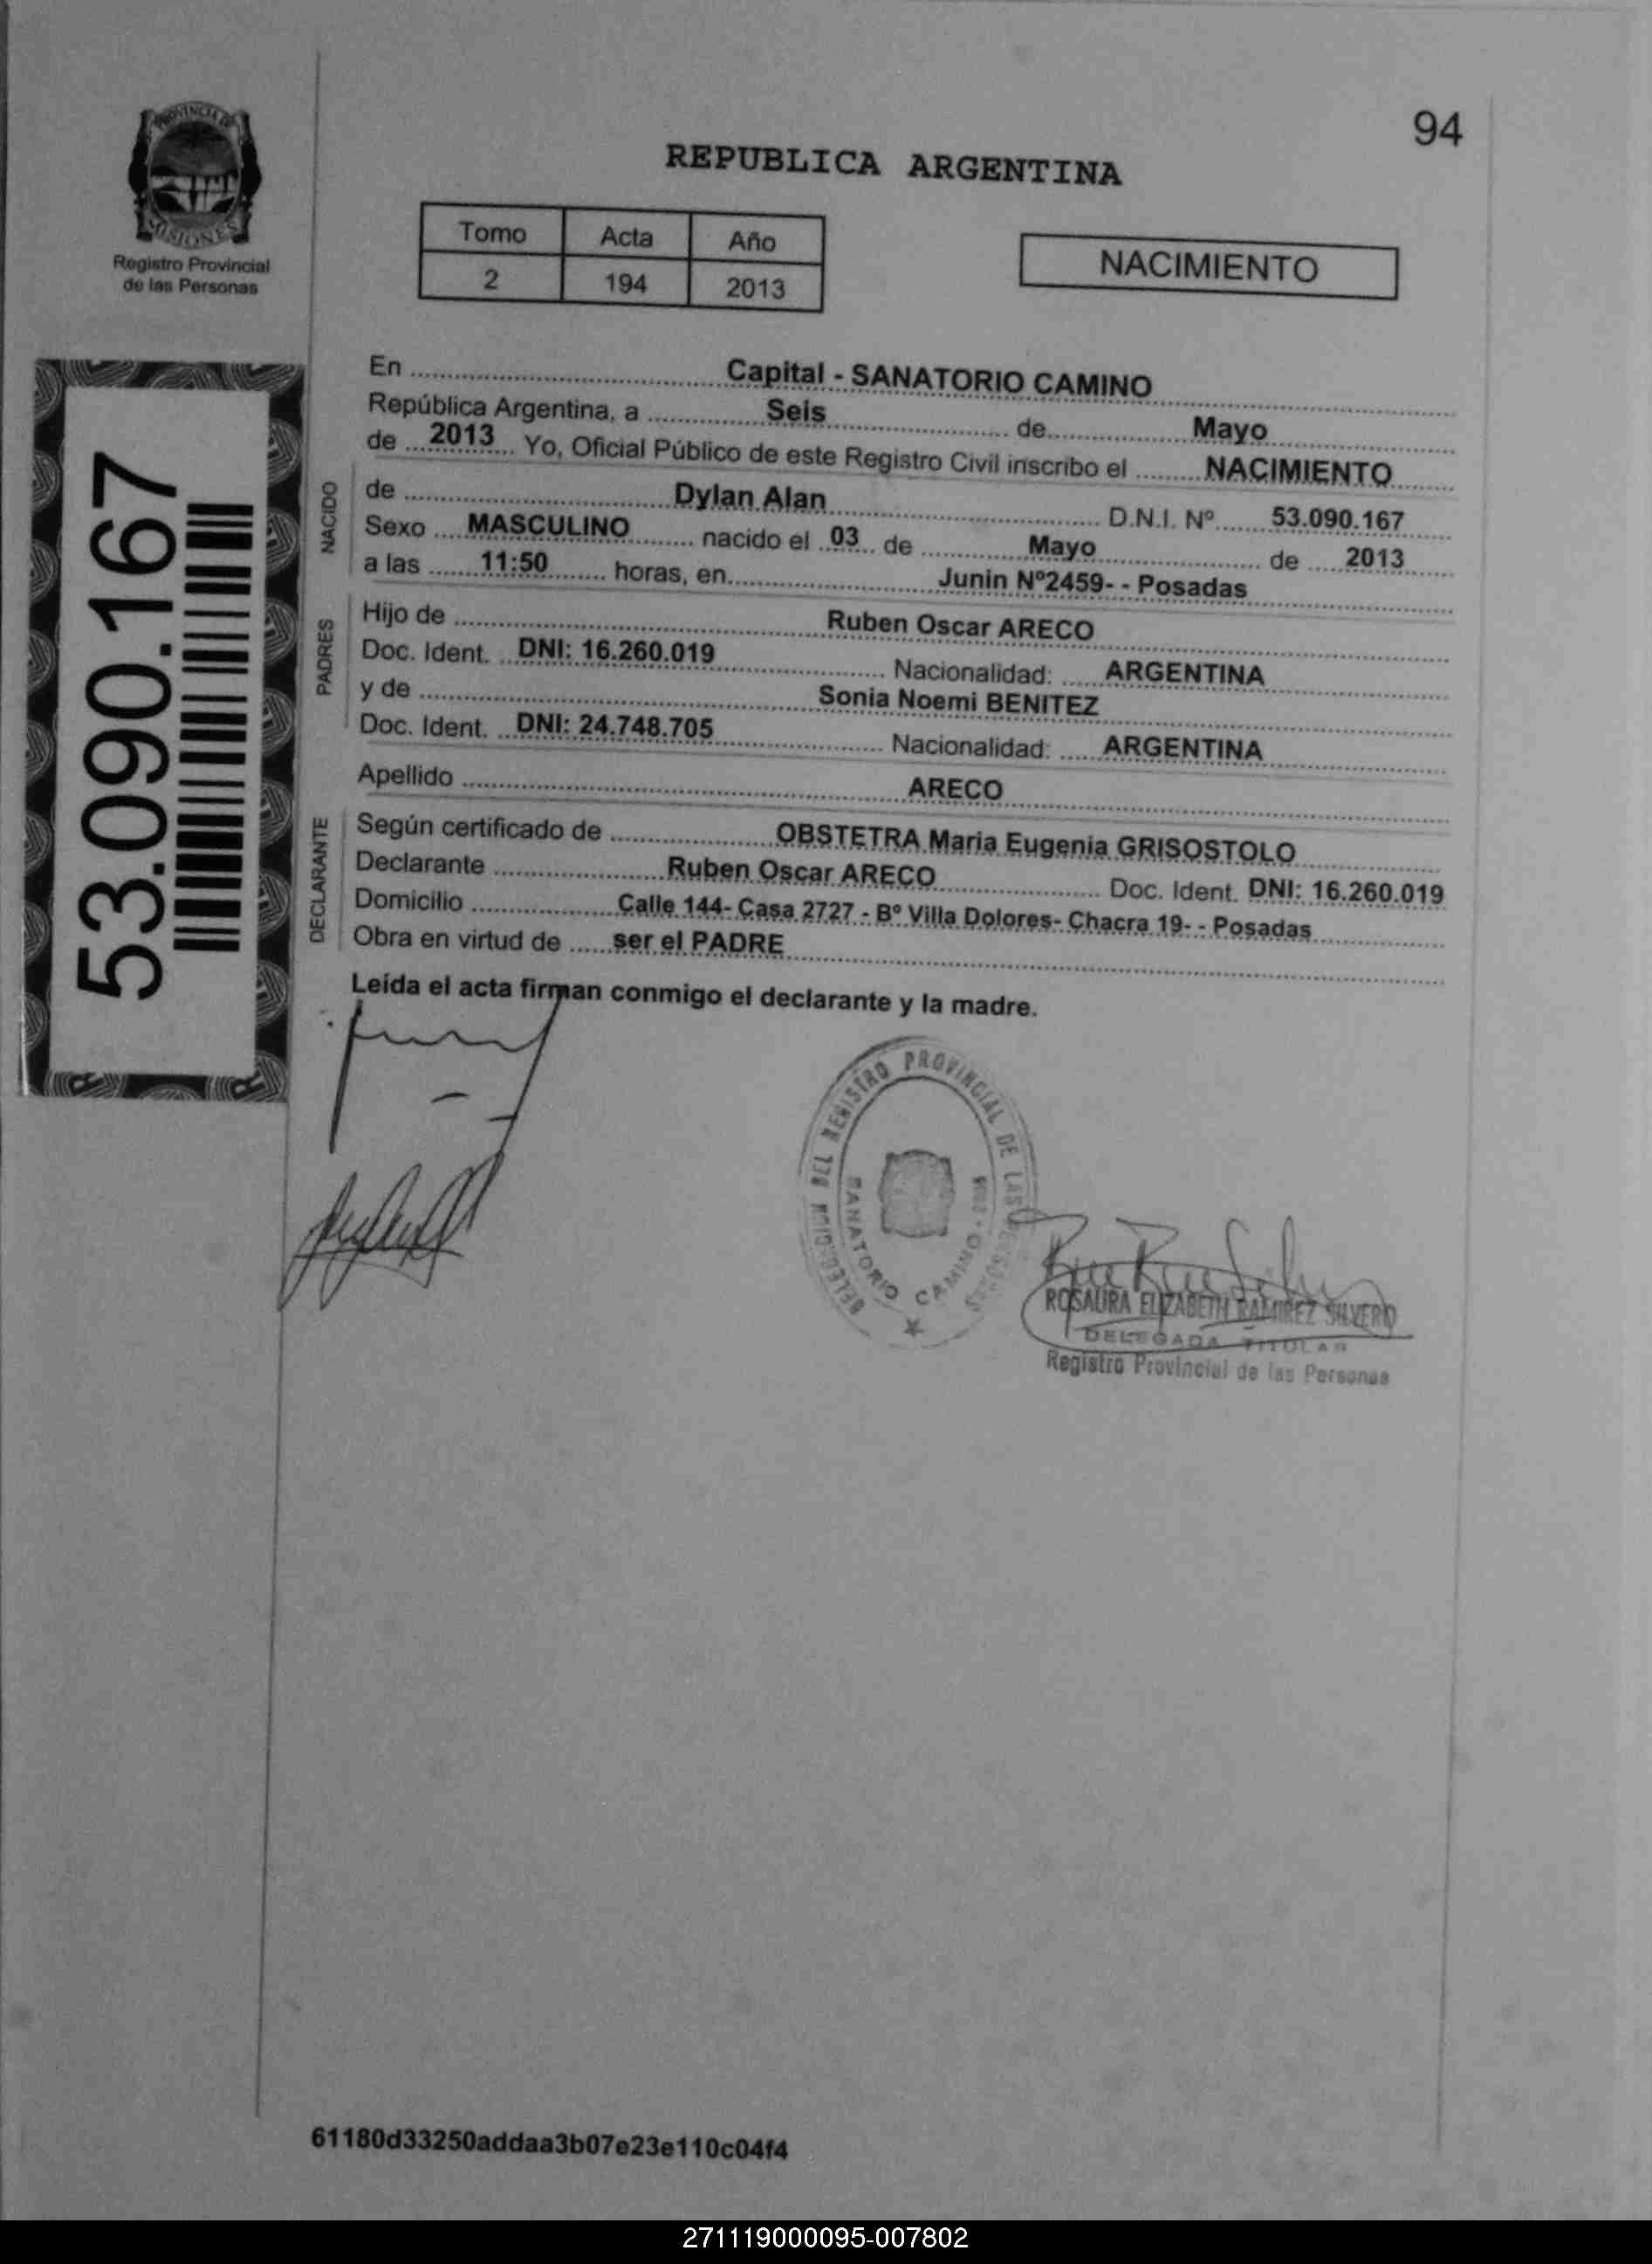 94
PROVINCIA DE
MISIONES
Registro Provincial
de las Personas
REPUBLICA ARGENTINA
Tomo Acta Año
2 194 2013
NACIMIENTO
53.090.167
En Capital - SANATORIO CAMINO
República Argentina, a Seis de Mayo
de 2013 Yo, Oficial Público de este Registro Civil inscribo el NACIMIENTO
NACIDO
de Dylan Alan D.N.I. Nº 53.090.167
Sexo MASCULINO nacido el 03 de Mayo de 2013
a las 11:50 horas, en Junin Nº2459- - Posadas
PADRES
Hijo de Ruben Oscar ARECO
Doc. Ident. DNI: 16.260.019 Nacionalidad: ARGENTINA
y de Sonia Noemi BENITEZ
Doc. Ident. DNI: 24.748.705 Nacionalidad: ARGENTINA
Apellido ARECO
DECLARANTE
Según certificado de OBSTETRA Maria Eugenia GRISOSTOLO
Declarante Ruben Oscar ARECO Doc. Ident. DNI: 16.260.019
Domicilio Calle 144- Casa 2727 - Bº Villa Dolores- Chacra 19- - Posadas
Obra en virtud de ser el PADRE
Leída el acta firman conmigo el declarante y la madre.
DELEGACION DEL REGISTRO PROVINCIAL DE LAS PERSONAS
SANATORIO CAMINO
ROSAURA ELIZABETH RAMIREZ SILVERO
DELEGADA TITULAR
Registro Provincial de las Personas
61180d33250addaa3b07e23e110c04f4
271119000095-007802